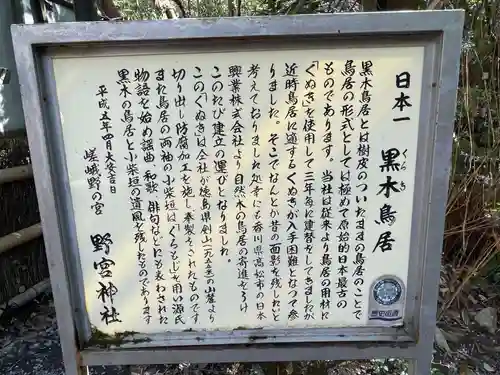 日本一 黒木鳥居
くろき
黒木鳥居とは樹皮のついたままの鳥居のことで
鳥居の形式としては極めて原始的日本最古の
ものであります。当社は従来より鳥居の用材に
「くぬぎ」を使用して三年毎に建替をしてきましたが
近時鳥居に適するくぬぎが入手困難となって参
りました。そこでなんとか昔の面影を残したいと
考えておりました処幸にも香川県高松市の日本
興業株式会社より自然木の鳥居の寄進をうけ
このたび建立の運びとなりました。
このくぬぎは仝社が徳島県剣山(一九五五m)の山麓より
切り出し防腐加工を施し奉製をされたもので
また鳥居の両袖の小柴垣は「くろもじ」を用い源氏
物語を始め謡曲 和歌 俳句などにもあらわされた
黒木の鳥居と小柴垣の遺風を残したものであります
平成五年四月大安吉日
嵯峨野の宮 野宮神社
歴史街道